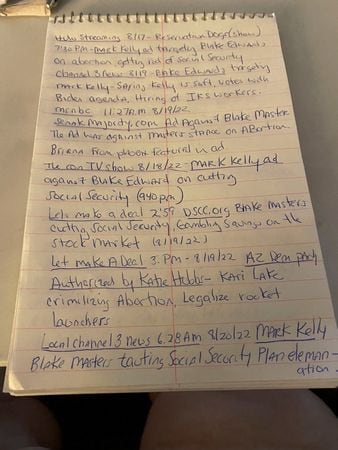 Hulu Streaming 8/17 - Reservation Dogs (show)
7:30 PM - Mark Kelly ad targeting Blake Edward,
on abortion getting rid of Social Security
Channel 3 news 8/19 - Blake Edwards targeting
Mark Kelly - Saying Kelly is soft, votes with
Biden agenda, Hiring of IRS workers.
msnbc 11:27 AM 8/19/22
Senate Majority.com Ad Against Blake Master
The Ad was against masters stance on Abortion.
Briena from phoenix featured in ad
The con TV show 8/18/22 - Mark Kelly ad
against Blake Edward on cutting
Social Security (940 pm)
Lets make a deal 2:59 DSCC.org Blake Masters
cutting Social Security, Gambling Savings on the
Stock Market (8/19/22)
Let make A Deal 3. PM - 8/19/22 AZ Dem party
Authorized by Katie Hobbs - Kari Lake
crimilizing Abortion, Legalize rocket
launchers
Local channel 3 news 6.28 Am 8/20/22 Mark Kelly
Blake Masters tauting Social Security Plan eleman-
ation.